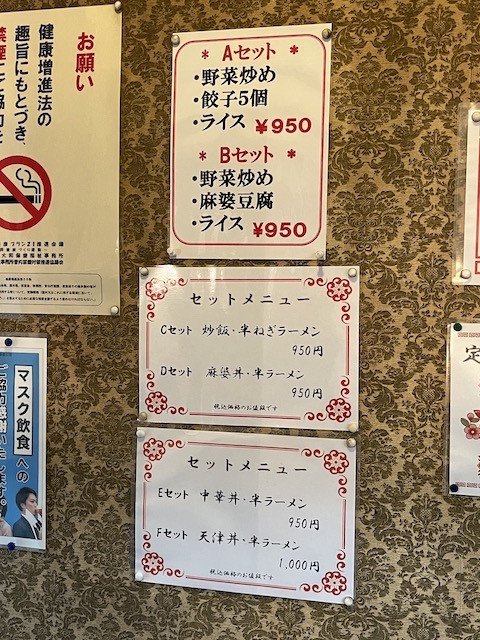 お願い
健康増進法の
趣旨にもとづき、
* Aセット *
・野菜炒め
・餃子5個
・ライス ¥950
* Bセット *
・野菜炒め
・麻婆豆腐
・ライス ¥950
セットメニュー
Cセット 炒飯・半ねぎラーメン
950円
Dセット 麻婆丼・半ラーメン
950円
税込価格のお値段です
セットメニュー
Eセット 中華丼・半ラーメン
950円
Fセット 天津丼・半ラーメン
1,000円
税込価格のお値段です
マスク飲食への
ご協力感謝いたします。
定